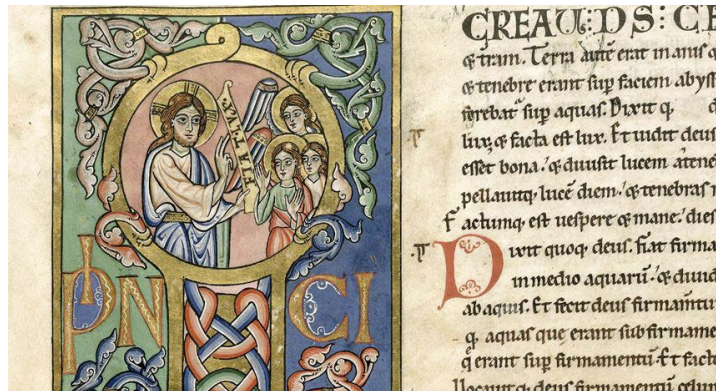 FIAT LVX
PN CI
CREAV: DS: CE
& tram. Terra autē erat inanis
& tenebre erant sup faciem abyss
ferebat sup aquas. Dixit q,
lux; & facta est lux. Et uidit deus
esset bona. & diuisit lucem a tene
pellauitq; lucē diem. & tenebras
factumq; est uespere & mane. dies
Dixit quoq; deus. fiat firma
in medio aquarū. & diuid
ab aquis. Et fecit deus firmamtu
q, aquas que erant sub firmame
q erant sup firmamentū. Et fact
llocauitq; deus firmamentū celum